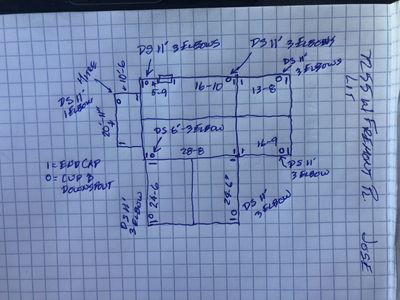 7255 W FREMONT PL
LIT
JOSE
DS 11' 3 ELBOWS
DS 11' 3 ELBOWS
DS 11'
3 ELBOWS
10'-6
DS 11'
1 ELBOW
5-9
16-10
13-8
DS 6'-3 ELBOW
28-8
16-9
DS 11'
3 ELBOW
1 = END CAP
0 = CUP &
DOWNSPOUT
DS 11'
3 ELBOW
24-6
24-6"
DS 11'
3 ELBOW